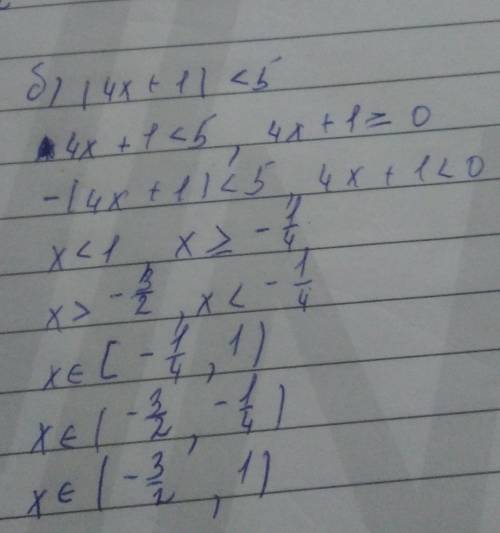 б) |4x + 1| < 5
4x + 1 < 5, 4x + 1 ≥ 0
-(4x + 1) < 5, 4x + 1 < 0
x < 1, x ≥ -1/4
x > -3/2, x < -1/4
x ∈ [-1/4, 1)
x ∈ (-3/2, -1/4)
x ∈ (-3/2, 1)